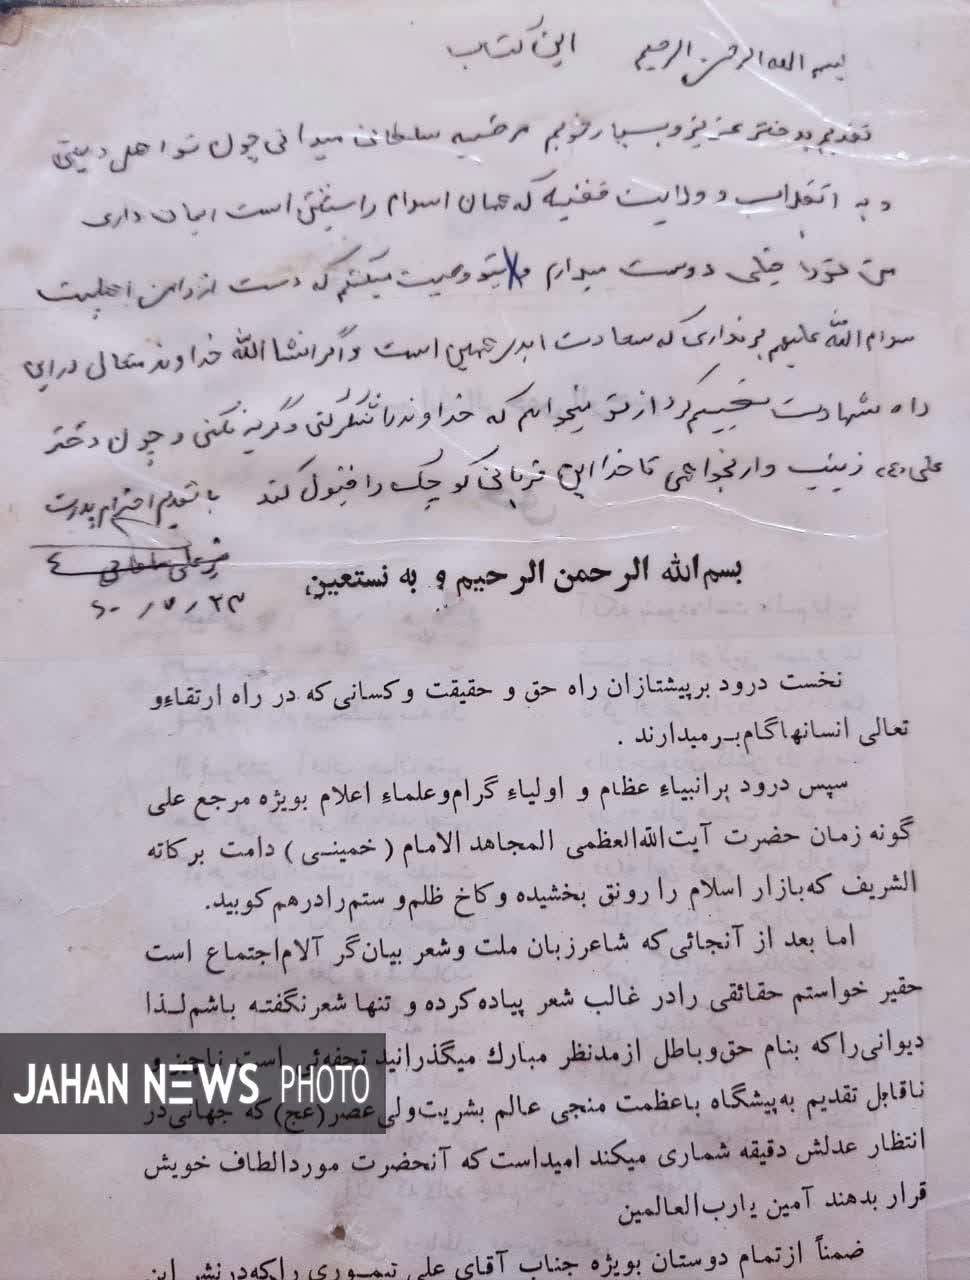 بسم الله الرحمن الرحیم این کتاب
تقدیم به دختر عزیز و بسیار خوبم مرضیه سلطانی میدانی چون تو اهل دینی
و به انقلاب و ولایت فقیه که همان اسلام راستین است ایمان داری
من تو را خیلی دوست میدارم و بتو وصیت میکنم که دست از دامن اهلبیت
سلام الله علیهم برنداری که سعادت ابدی همین است و اگر انشا الله خداوند متعال در این
راه شهادت نصیبم کرد از تو میخواهم که خداوند را شکر کنی و گریه نکنی و چون دختر
علی (ع) زینب وار بخواهی تا خدا این قربانی کوچک را قبول کند
با تقدیم احترام پدرت
علی سلطانی
۶۰/۷/۲۳
بسم الله الرحمن الرحیم و به نستعین
نخست درود بر پیشتازان راه حق و حقیقت و کسانی که در راه ارتقاء و
تعالی انسانها گام بــر میدارند .
سپس درود بر انبیاء عظام و اولیاء گرام و علماء اعلام بویژه مرجع علی
گونه زمان حضرت آیت‌الله‌العظمی المجاهد الامام ( خمینــی ) دامت برکاته
الشریف که بازار اسلام را رونق بخشیده و کاخ ظلم و ستم را درهم کوبید.
اما بعد از آنجائی که شاعر زبان ملت و شعر بیان‌گر آلام اجتماع است
حقیر خواستم حقائقی را در غالب شعر پیاده کرده و تنها شعر نگفته باشم لــذا
دیوانی را که بنام حق و باطل از مدنظر مبارك میگذرانید تحفه‌ئی است ناچیز و
ناقابل تقدیم به پیشگاه با عظمت منجی عالم بشریت ولی عصر (عج) که جهانی در
انتظار عدلش دقیقه شماری میکند امید است که آنحضرت مورد الطاف خویش
قرار بدهند آمین یارب‌العالمین
ضمناً از تمام دوستان بویژه جناب آقای علی تیمــوری را که در نشر این
JAHAN NEWS PHOTO